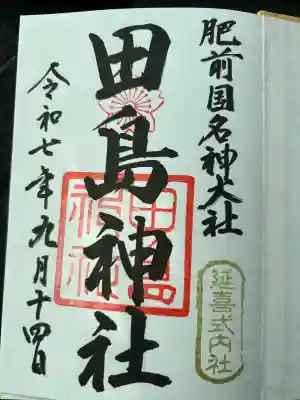 肥前国名神大社
延喜式内社
田島神社
令和七年九月十四日